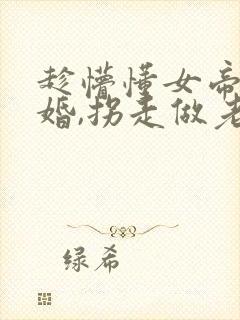 趁懵懂女帝
婚,拐走做老
绿希